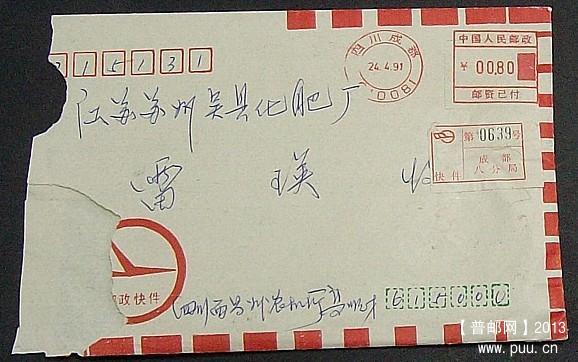 中国人民邮政
¥ 00.80
邮资已付
四川成都
24.4.91
(0081)
15131
江苏苏州吴县化肥厂
第0639号
成都
八分局
快件
雷瑛收
邮政快件
四川西昌州农机厅
615000
【普邮网】2013
www.puu.cn